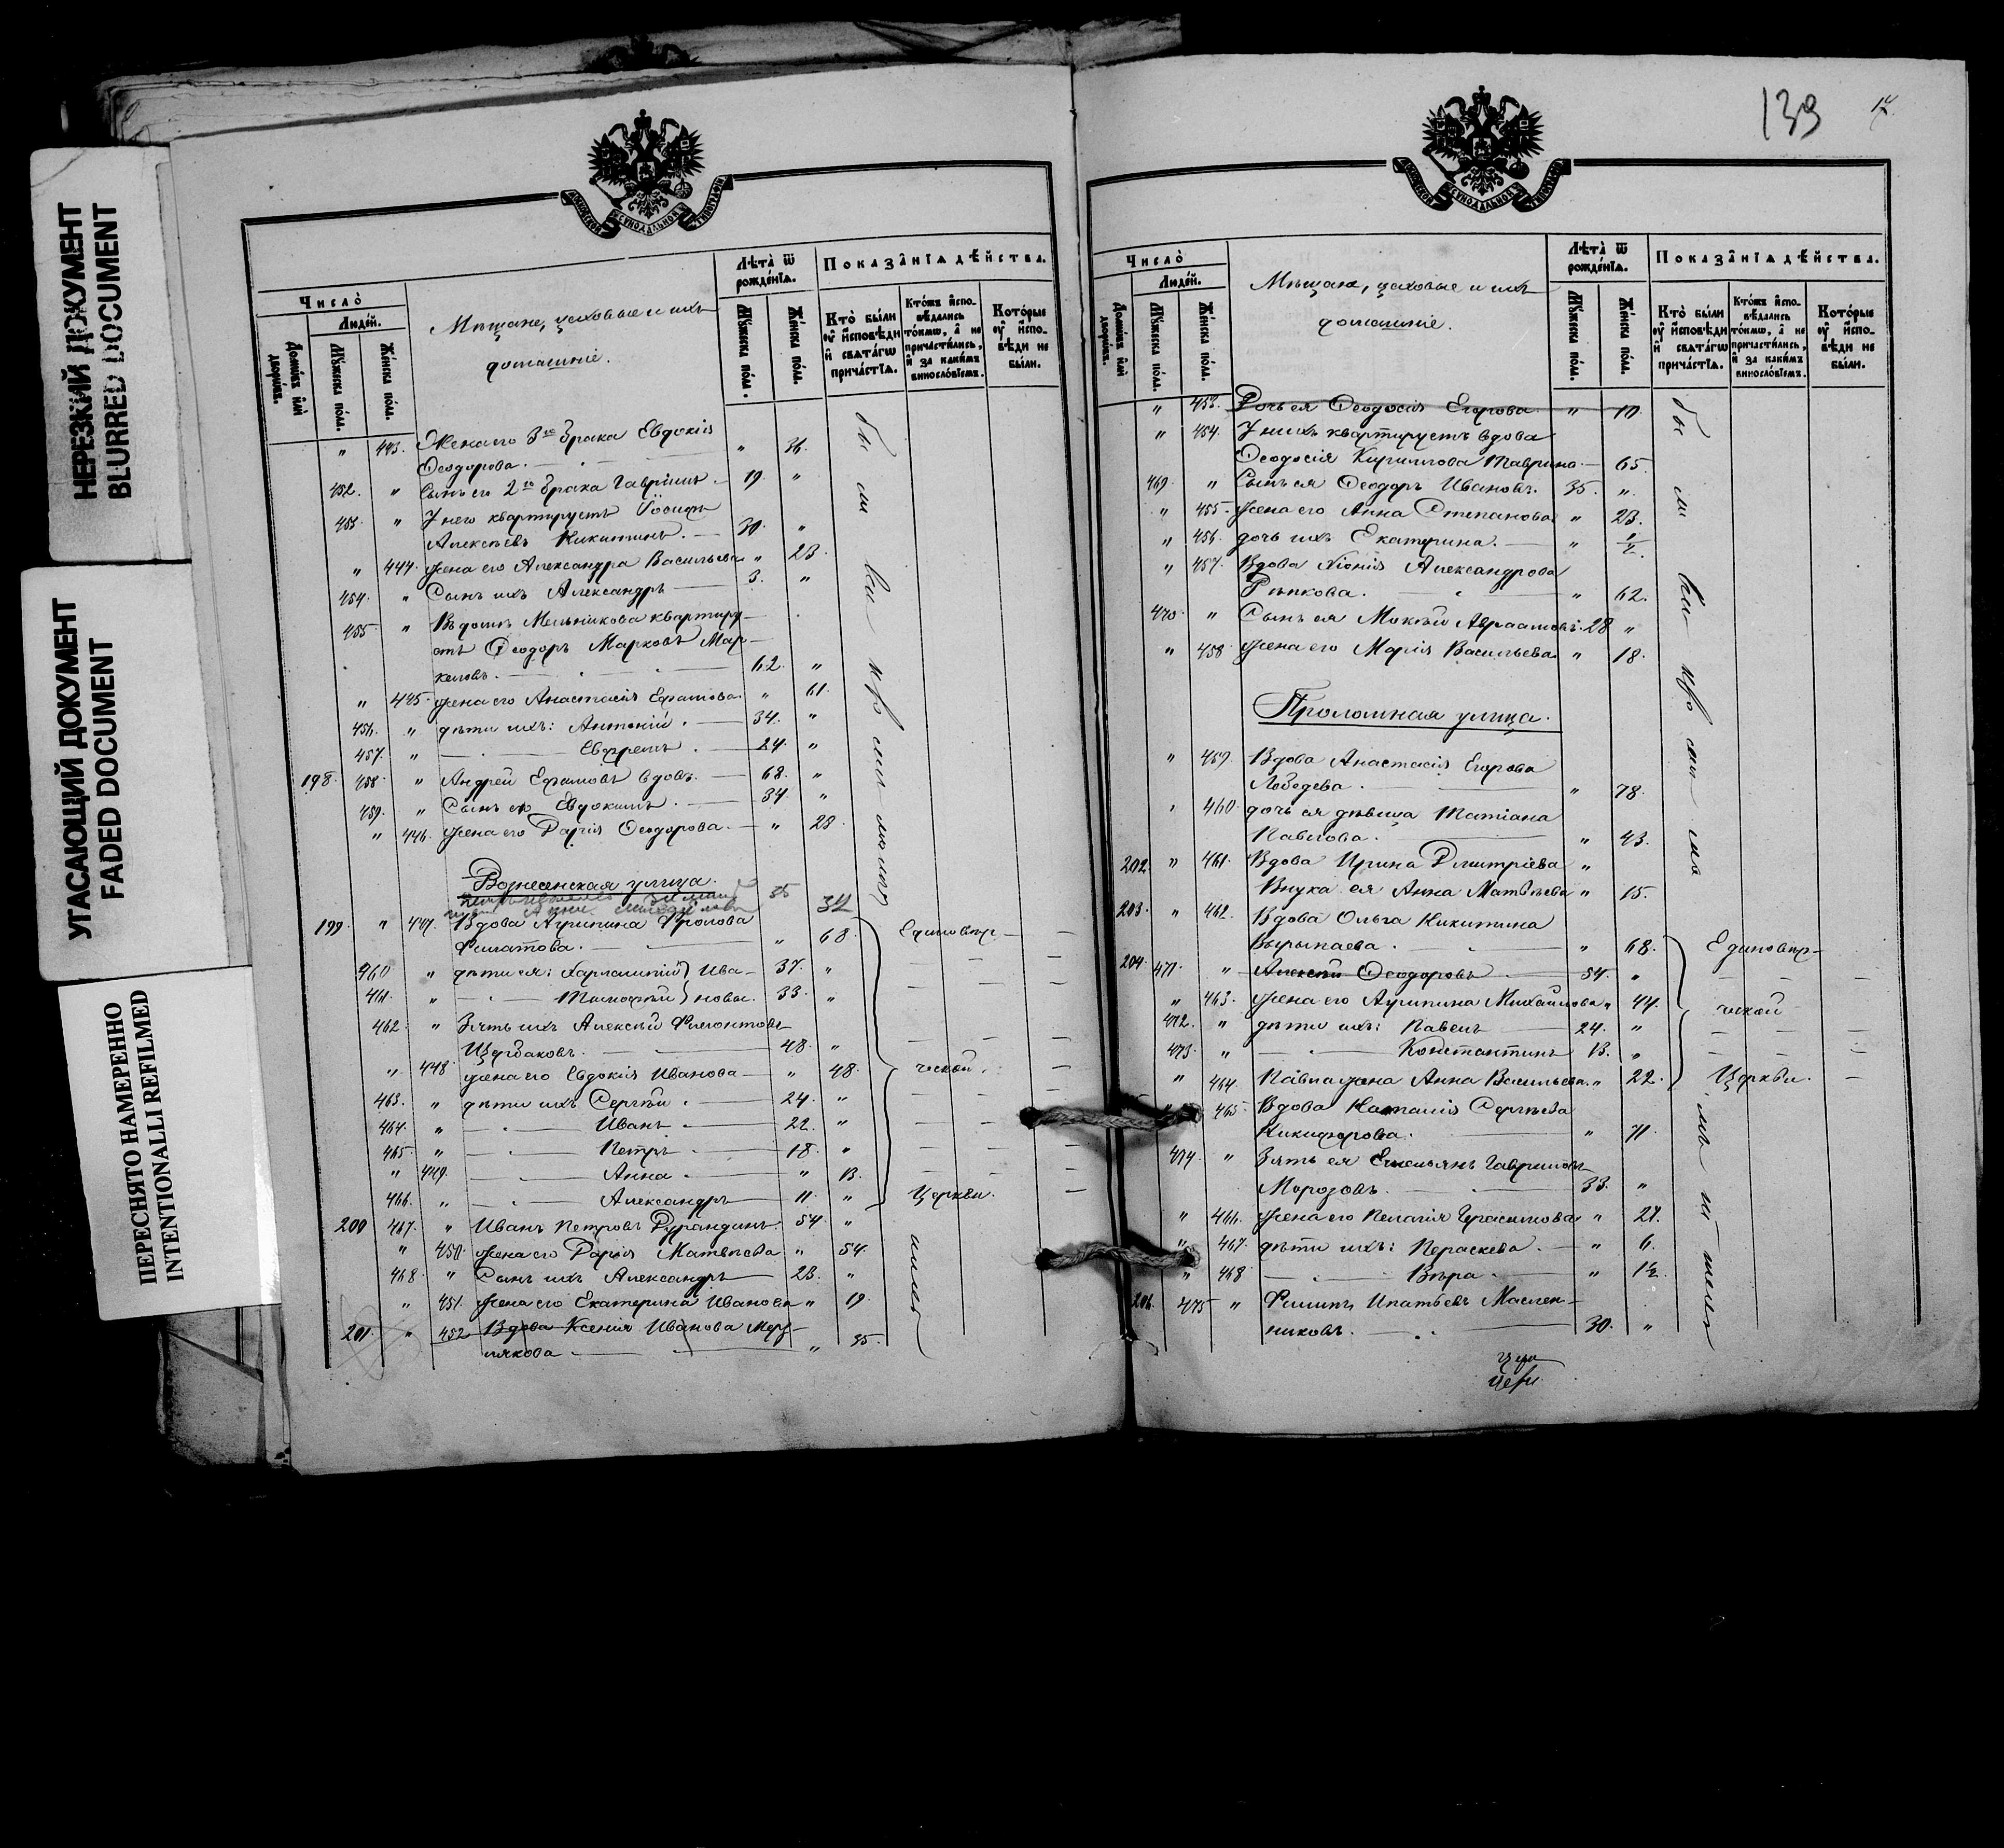 НЕРЕЗКИЙ ДОКУМЕНТ
BLURRED DOCUMENT
УГАСАЮЩИЙ ДОКУМЕНТ
FADED DOCUMENT
ПЕРЕСНЯТО НАМЕРЕННО
INTENTIONALLI REFILMED
Число̀
Людéй.
Домóвъ илѝ дворóвъ.
Мꙋ́жеска пóла.
Жéнска пóла.
Мѣщане, цеховые и ихъ
домашніе.
Лѣта̀ ѿ рождéнїѧ.
Мꙋ́жеска пóла.
Жéнска пóла.
Показа̂нїѧ дѣ́йства.
Ктò были ᲂу҆ и҆сповѣди и҆ свѧтáгѡ причáстїѧ.
Ктóжъ и҆сповѣдались тóкмѡ, а҆ не причастились, и҆ за каки́мъ винослóвїемъ.
Котóрые ᲂу҆ и҆сповѣди не бы́ли.
" 443. Жена его 3го брака Евдокія
Ѳеодорова. " 36.
452. " Сынъ его 2го брака Гавріилъ 19. "
453. " У него квартируетъ Іосифъ
Алексѣевъ Никитинъ. 30. "
" 444. Жена его Александра Васильева " 23.
454. " Сынъ ихъ Александръ 3. "
455. " Въ домѣ Мельникова квартиру-
етъ Ѳеодоръ Марковъ Мар-
келовъ. 62. "
" 445. Жена его Анастасія Ефимова. " 61.
456. " дѣти ихъ: Антоній. 34. "
457. " Ефремъ. 24. "
198. 458. " Андрей Ефимовъ вдовъ. 68. "
459. " Сынъ его Евдокимъ. 34. "
" 446. Жена его Дарія Ѳеодорова. " 23.
Вознесенская улица.
35 32
199. " 447. Вдова Агрипина Фролова
Филатова. " 68. Единовѣр-
460 " дѣти ея: Харлампій } Ива- 37. "
461. " Тимофей } новы. 33. "
462. " Зять ихъ Алексѣй Филонтовъ
Щербаковъ. 48. "
" 448 жена его Евдокія Иванова " 48. ческой.
463. " дѣти ихъ Сергѣй. 24. "
464. " Иванъ 22. "
465. " Петръ 18. "
" 449. Анна. " 13.
466. " Александръ 11. " Церкви.
200 467. " Иванъ Петровъ Дурандинъ. 54. "
" 450. Жена его Дарія Матвѣева " 54.
468. " Сынъ ихъ Александръ 23. "
" 451. Жена его Екатерина Иванова " 19.
201. " 452 Вдова Ксенія Иванова Мер-
лякова " 35.
139
Число̀
Людéй.
Домóвъ илѝ дворóвъ.
Мꙋ́жеска пóла.
Жéнска пóла.
Мѣщане, цеховые и ихъ
домашніе.
Лѣта̀ ѿ рождéнїѧ.
Мꙋ́жеска пóла.
Жéнска пóла.
Показа̂нїѧ дѣ́йства.
Ктò были ᲂу҆ и҆сповѣди и҆ свѧтáгѡ причáстїѧ.
Ктóжъ и҆сповѣдались тóкмѡ, а҆ не причастились, и҆ за каки́мъ винослóвїемъ.
Котóрые ᲂу҆ и҆сповѣди не бы́ли.
" 453. Дочь ея Ѳеодосія Егорова. " 10.
" 454. У нихъ квартируетъ вдова
Ѳеодосія Кириллова Таврина. 65.
469. " Сынъ ея Ѳеодоръ Ивановъ. 35. "
" 455. Жена его Анна Степанова " 23.
" 456. дочь ихъ Екатерина. " 1/2.
" 457. Вдова Хіонія Александрова
Рѣпкова. " 62.
470. " Сынъ ея Мокѣй Авраамовъ. 28 "
" 458 Жена его Марія Васильева " 18.
Проломная улица.
" 459. Вдова Анастасія Егорова
Лебедева. " 78.
" 460. дочь ея дѣвица Татіана
Павлова. " 43.
202. " 461. Вдова Ирина Дмитріева "
Внука ея Анна Матвѣева " 15.
203. " 462. Вдова Ольга Никитина
Вырыпаева. " 68. Единовѣр-
204. 471. " Алексѣй Ѳеодоровъ 54. "
" 463. Жена его Агрипина Михайлова " 44. ческой
472. " дѣти ихъ: Павелъ 24. "
473. " Константинъ 13. "
" 464. Павла жена Анна Васильева. " 22. Церкви.
" 465. Вдова Наталія Сергѣева
Никифорова. " 71.
474. " Зять ея Емельянъ Гавриловъ
Морозовъ. 33. "
" 466. Жена его Пелагія Герасимова " 27.
" 467. дѣти ихъ: Параскева. " 6.
" 468 Вѣра " 1½.
206. 475 " Филиппъ Ипатьевъ Маслен-
никовъ. 30. "